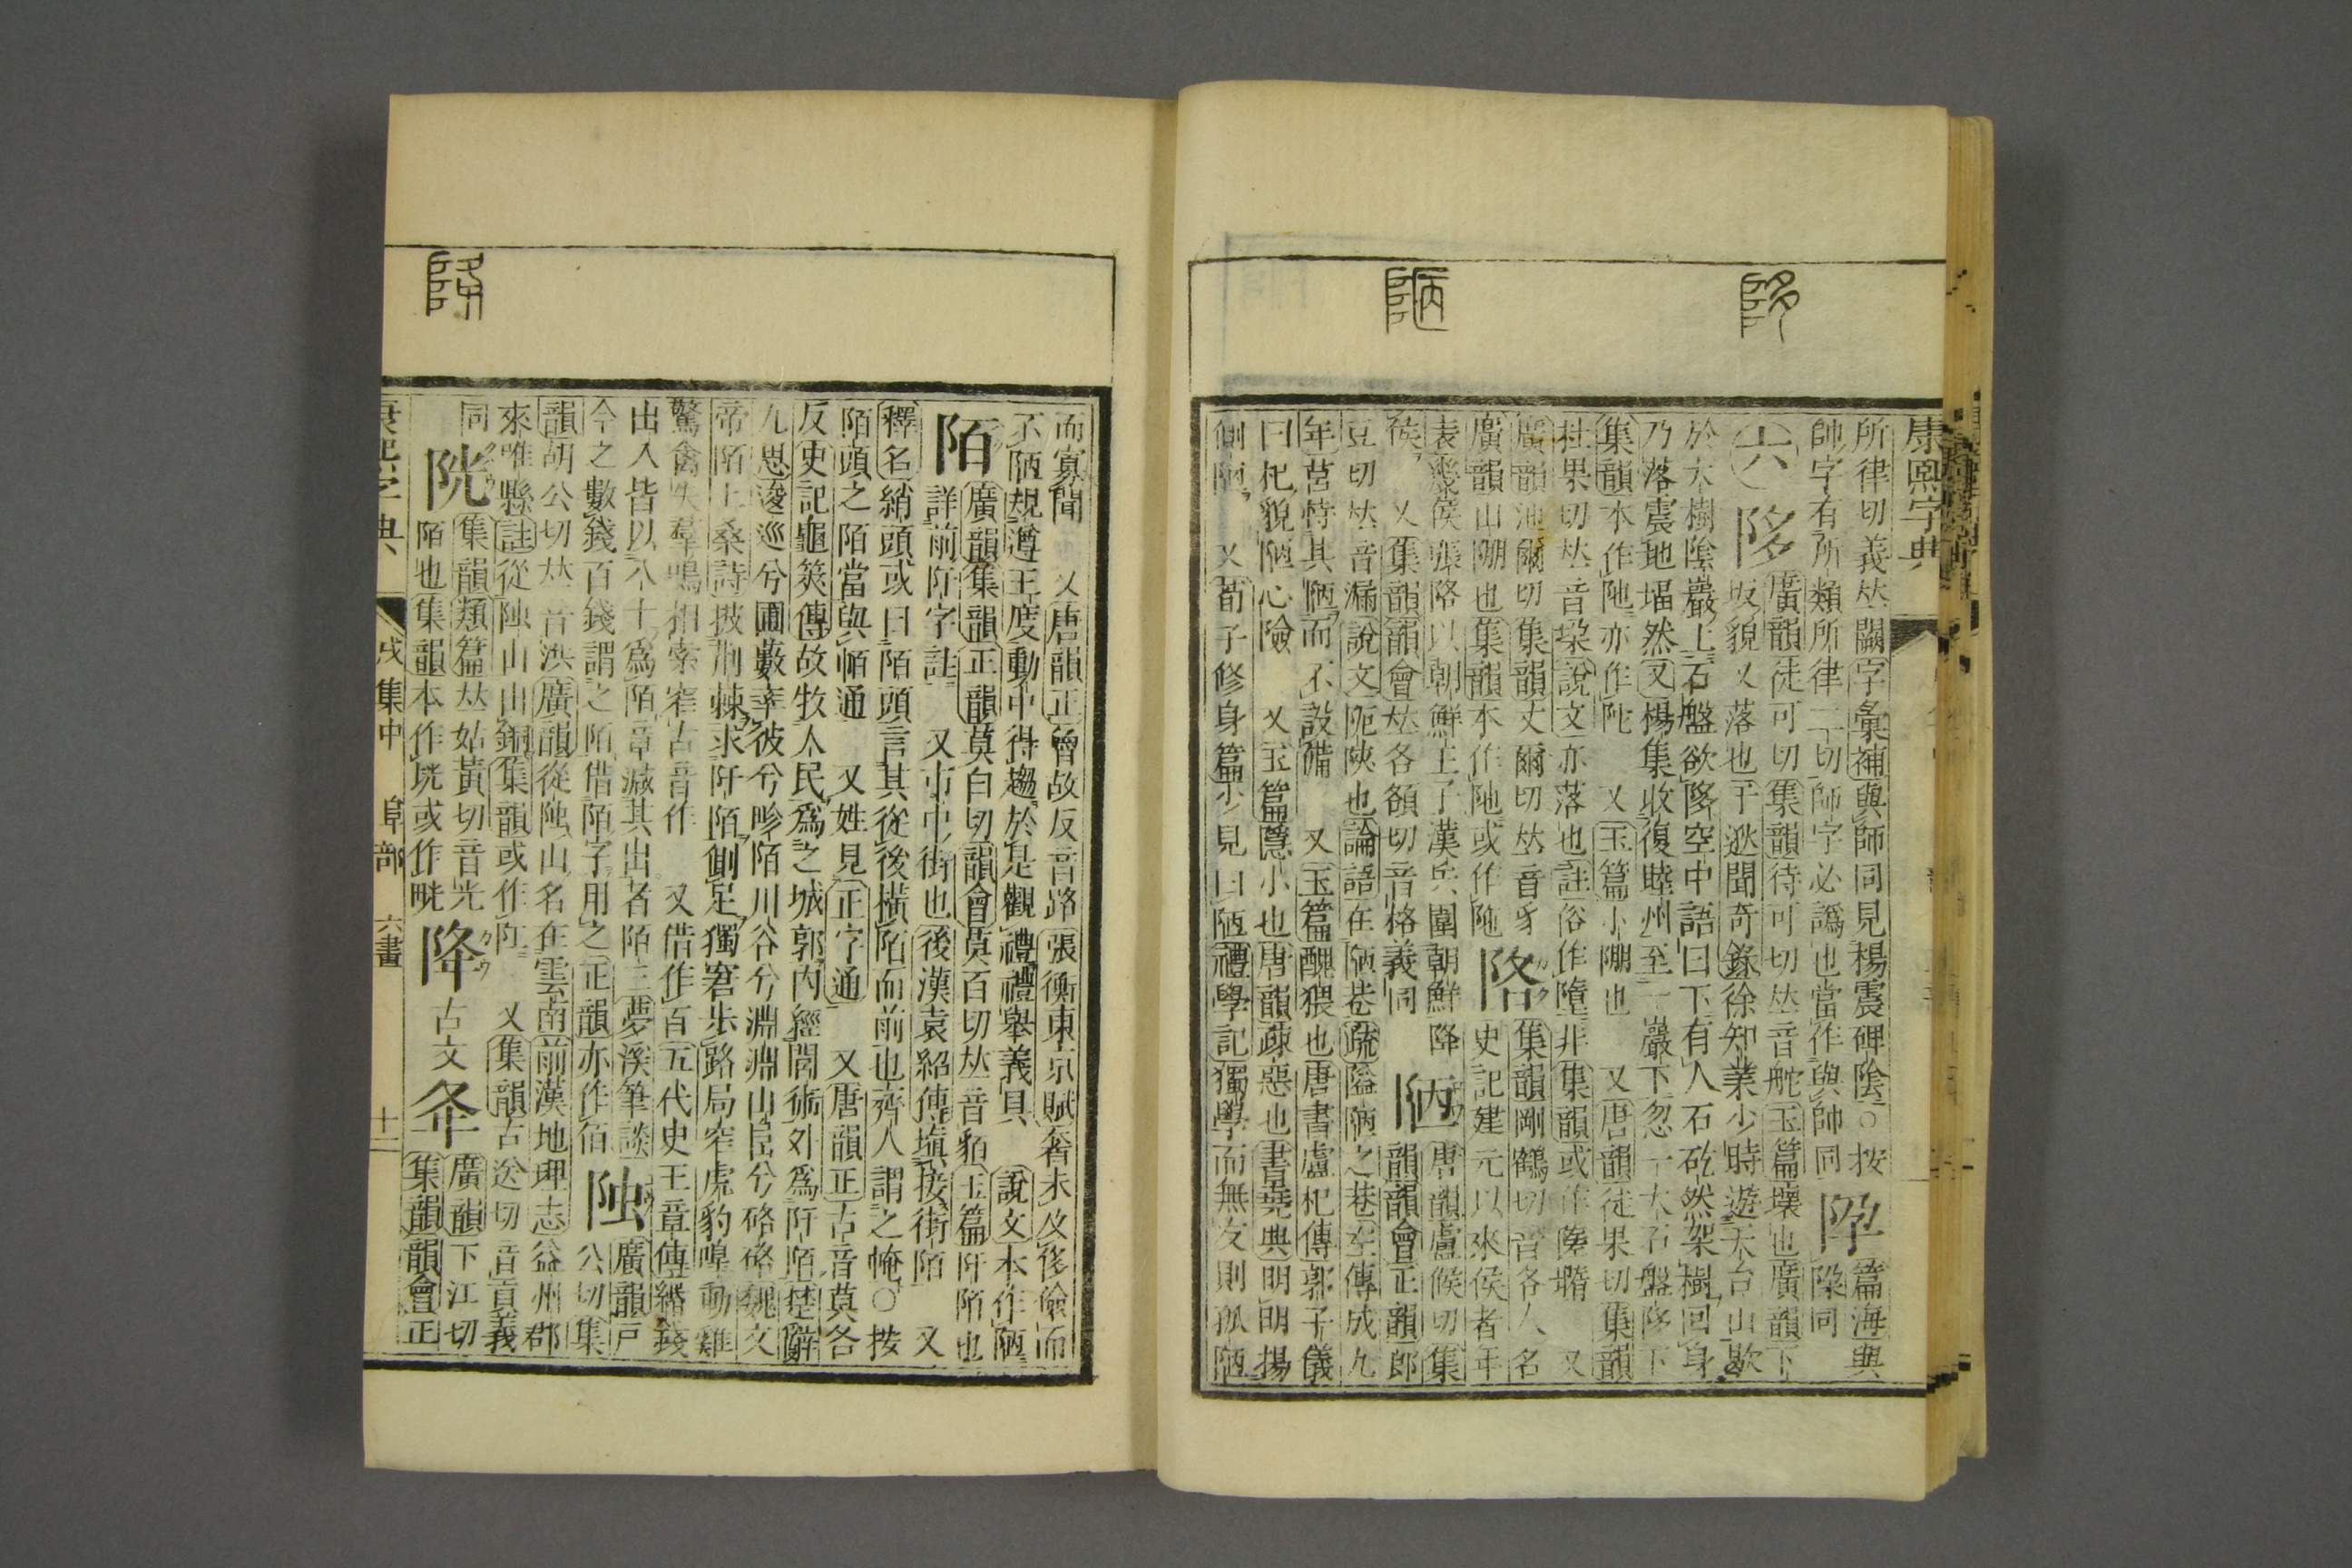 康熙字典
所律切義𠀤闕字彙補與師同見楊震碑陰○按
帥字有所類所律二切師字必譌也當作與帥同
篇海與
同
六
陊
廣韻徒可切集韻待可切𠀤音舵玉篇壞也廣韻下
坂貌又落也于逖聞奇錄徐知業少時遊天台山歇
於大樹陰巖上石盤欲陊空中語曰下有人石矻然架樹回身
乃落震地塌然又楊集收復睦州至一巖下忽一大石盤陊下
集韻本作陁亦作陀 又玉篇小崩也 又唐韻徒果切集韻
杜果切𠀤音垜說文亦落也註俗作墮非集韻或作陏墮 又
廣韻池爾切集韻丈爾切𠀤音豸
廣韻山崩也集韻本作阤或作陁
𨹟
集韻剛鶴切音各人名
史記建元以來侯者年
表幾侯張𨹟以朝鮮王子漢兵圍朝鮮降
侯 又集韻韻會𠀤各額切音格義同
陋
唐韻盧候切集
韻韻會正韻郎
豆切𠀤音漏說文阨陝也論語在陋巷疏隘陋之巷左傳成九
年莒恃其陋而不設備 又玉篇醜猥也唐書盧杞傳郭子儀
曰杞貌陋心險 又玉篇隱小也唐韻疎惡也書堯典明明揚
側陋 又荀子修身篇少見曰陋禮學記獨學而無友則孤陋
而寡聞 又唐韻正會故反音路張衡東京賦奢未及侈儉而
不陋規遵王度動中得趣於是觀禮禮舉義具 說文本作陋
陌
廣韻集韻正韻莫白切韻會莫百切𠀤音貊玉篇阡陌也
詳前阡字註 又市中街也後漢袁紹傳塡接街陌 又
釋名綃頭或曰陌頭言其從後橫陌而前也齊人謂之㡋○按
陌頭之陌當與帕通 又姓見正字通 又唐韻正古音莫各
反史記龜筴傳故牧人民爲之城郭內經閭術外爲阡陌楚辭
九思逡巡兮圃藪率彼兮畛陌川谷兮淵淵山𨸏兮硌硌魏文
帝陌上桑詩披荆棘求阡陌側足獨窘步路局笮虎豹嘷動雞
驚禽失羣鳴相索窄古音作 又借作百五代史王章傳緡錢
出入皆以八十爲陌章減其出者陌三夢溪筆談
今之數錢百錢謂之陌借陌字用之正韻亦作佰
䧆
廣韻戸
公切集
韻胡公切𠀤音洪廣韻從䧆山名在雲南前漢地理志益州郡
來唯縣註從䧆山出銅集韻或作𨸖 又集韻古送切音貢義
同
𨹐
集韻類篇𠀤姑黃切音光
陌也集韻本作垙或作㫕
降
古文
夅
廣韻下江切
集韻韻會正
康熙字典
戌集中
阜部
六畫
十一